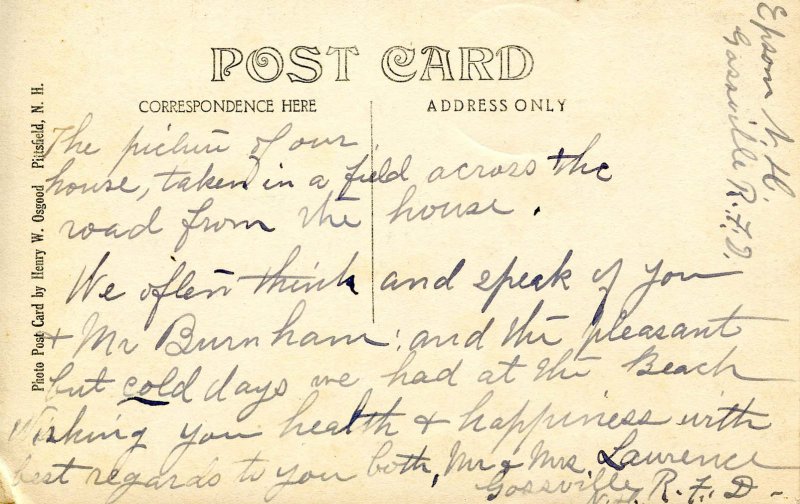 Epsom N. H.
Gossville R.F.D.
POST CARD
CORRESPONDENCE HERE
ADDRESS ONLY
Photo Post Card by Henry W. Osgood Pittsfield, N. H.
The picture of our
house, taken in a field across the
road from the house.
We often think and speak of you
& Mr Burnham: and the pleasant
but cold days we had at the Beach
Wishing you health & happiness with
best regards to you both, Mr & Mrs. Lawrence
Gossville R. F. D -
N.H.